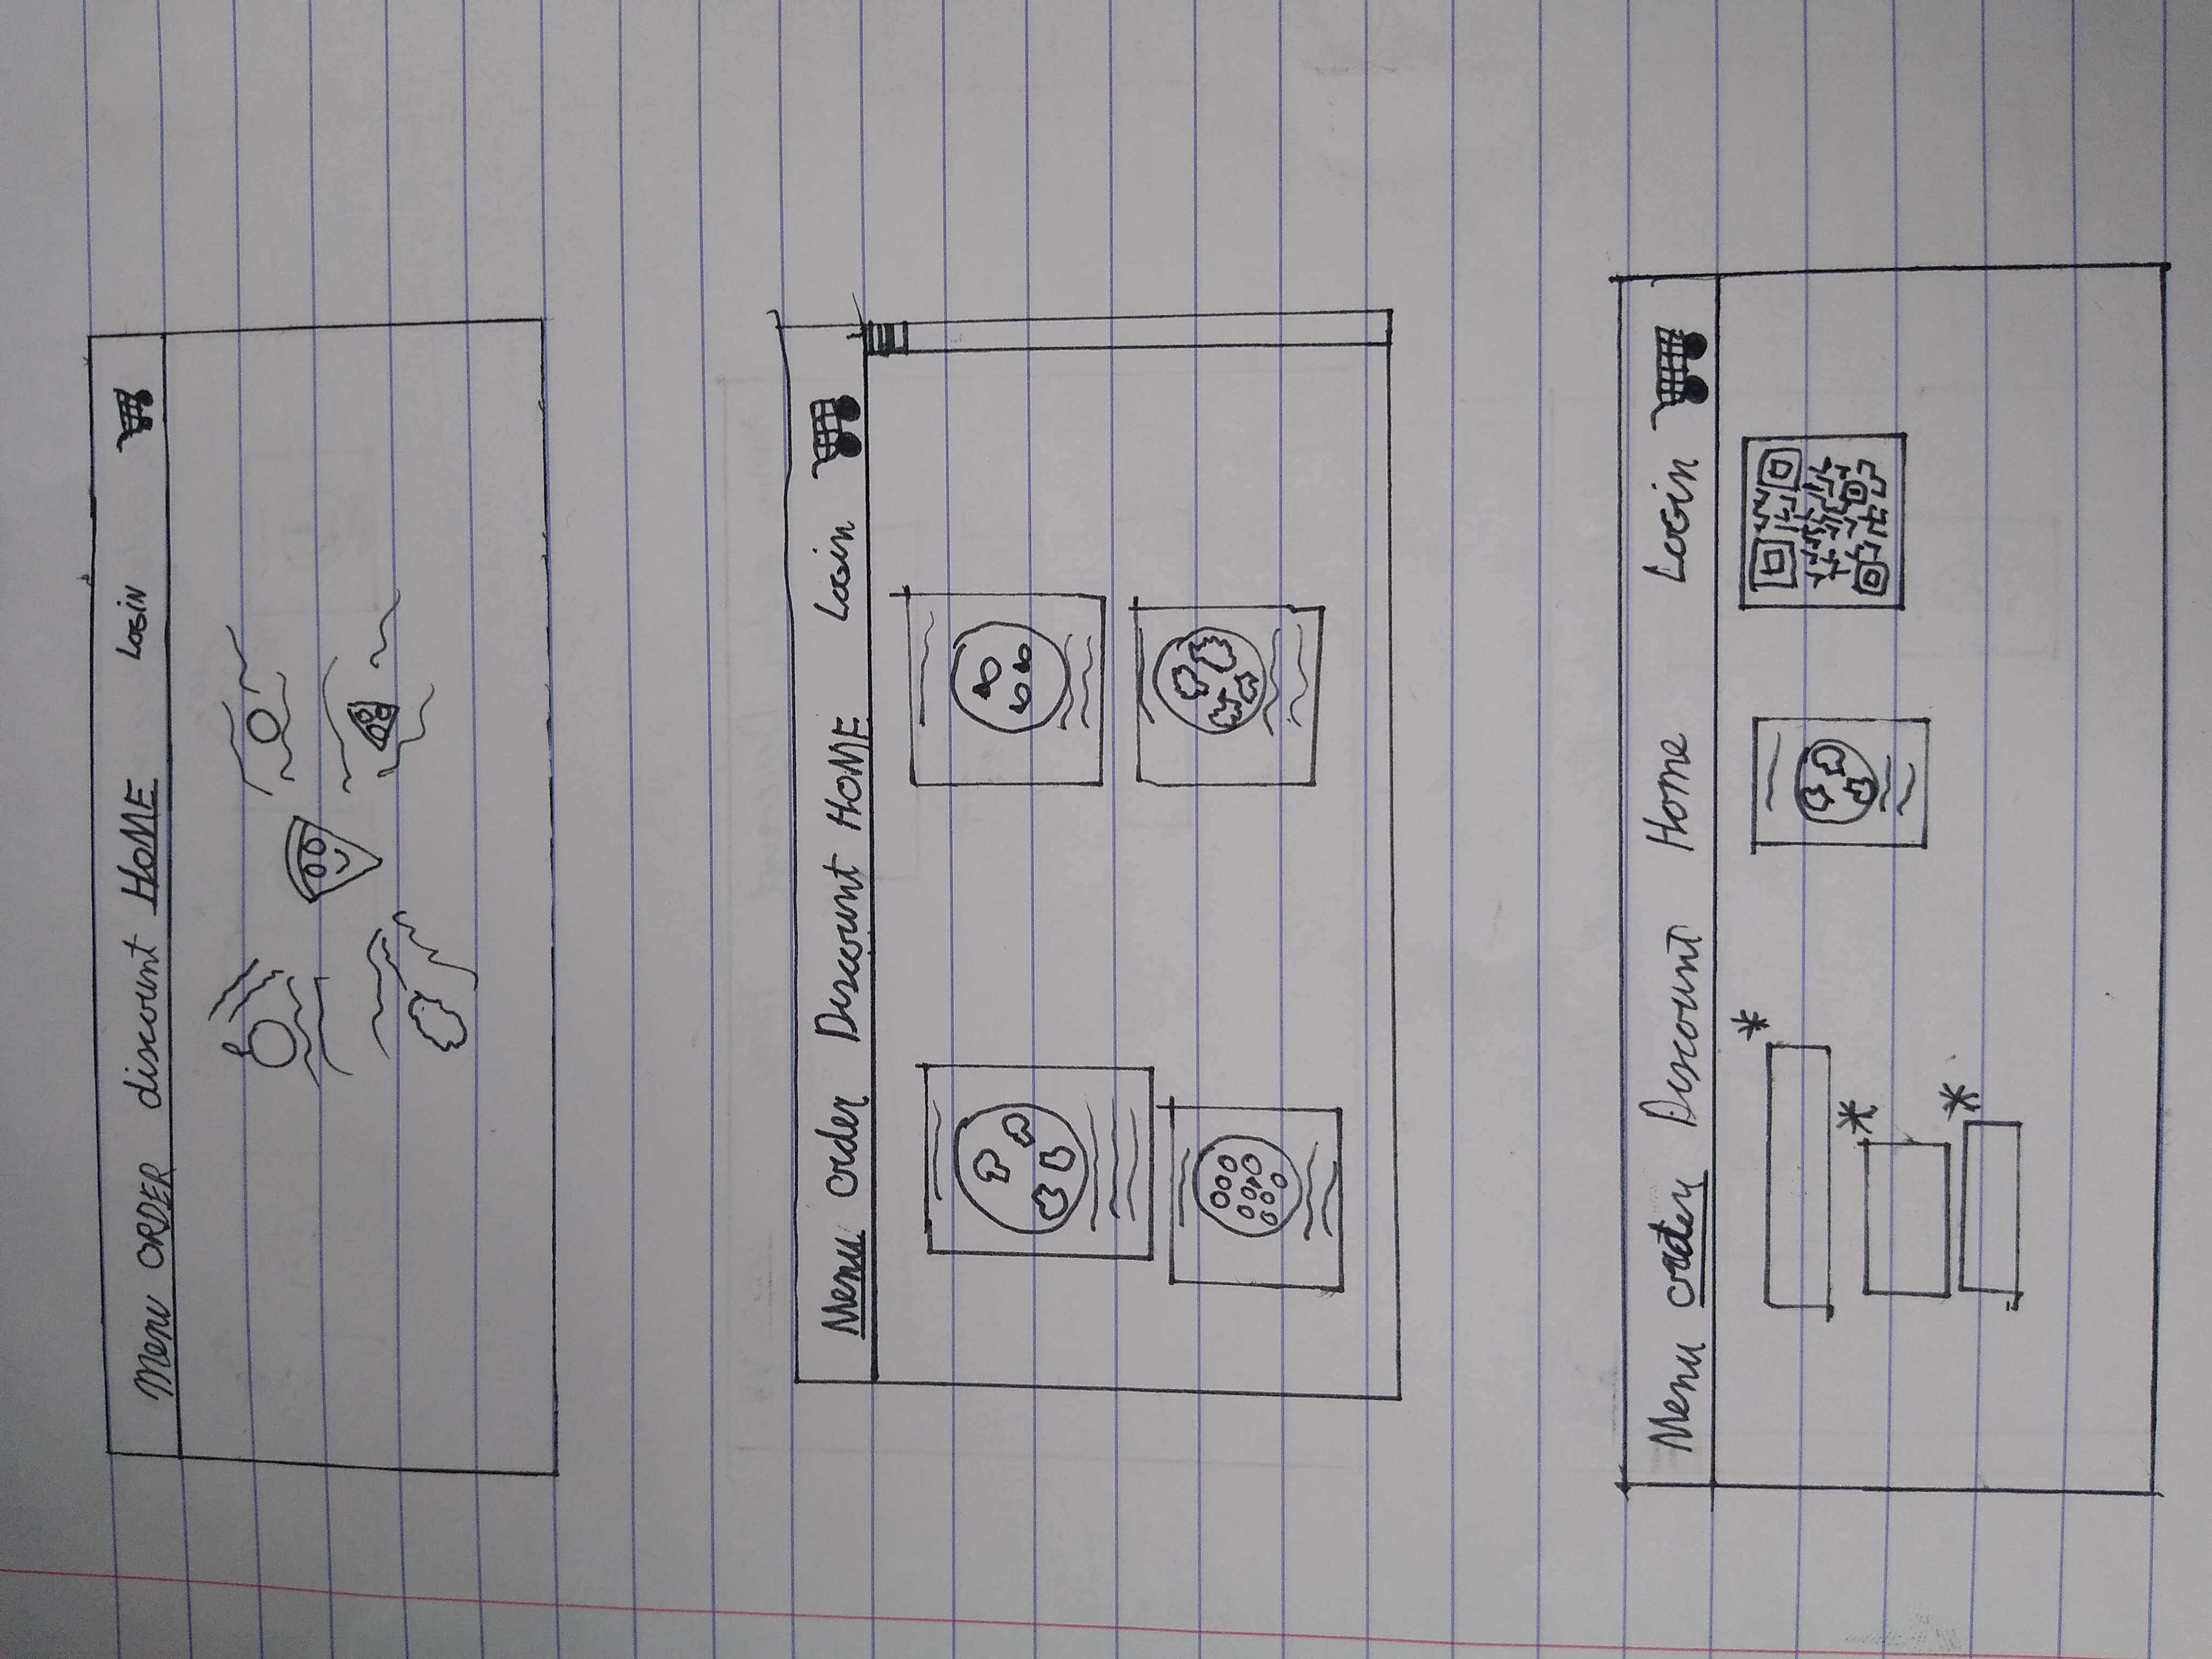 Menu ORDER discount HOME Login
Menu Order Discount HOME Login
Menu order Discount Home Login
*
*
*